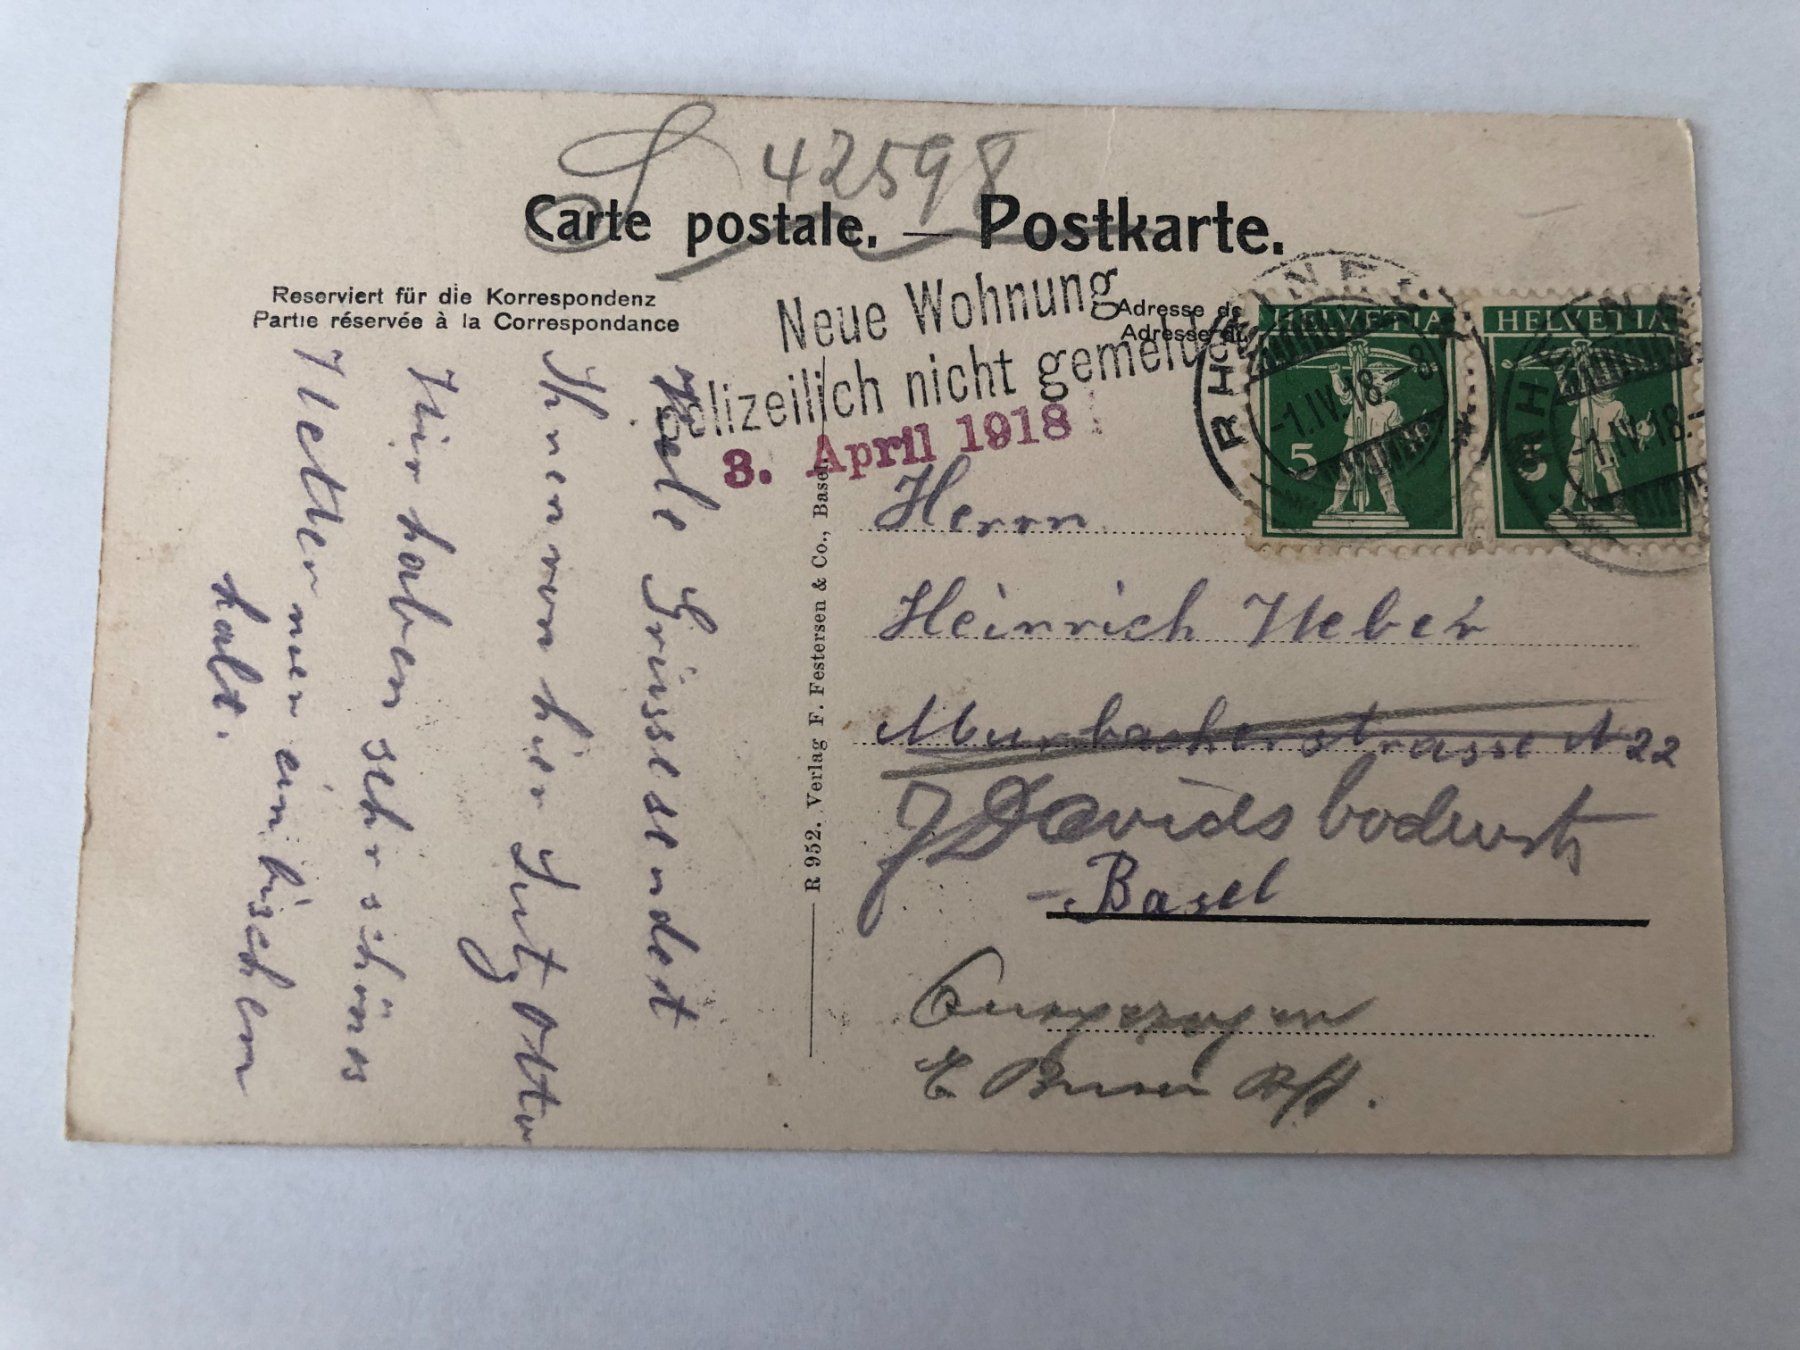 42598
Carte postale. — Postkarte.
Reserviert für die Korrespondenz
Partie réservée à la Correspondance
Neue Wohnung
polizeilich nicht gemeldet
3. April 1918
Adresse de
Adresse du
HELVETIA
5
HELVETIA
5
RHEINAU
-1.IV.18.-8
RHEINAU
-1.IV.18.
Viele Grüsse sendet
Ihnen von hier Lutz Otto
Wir haben sehr schönes
Wetter nur ein bischen
kalt.
R 952. Verlag F. Festersen & Co., Basel.
Herrn
Heinrich Weber
Murbacherstrasse N 22
Davidsbodenstr
- Basel